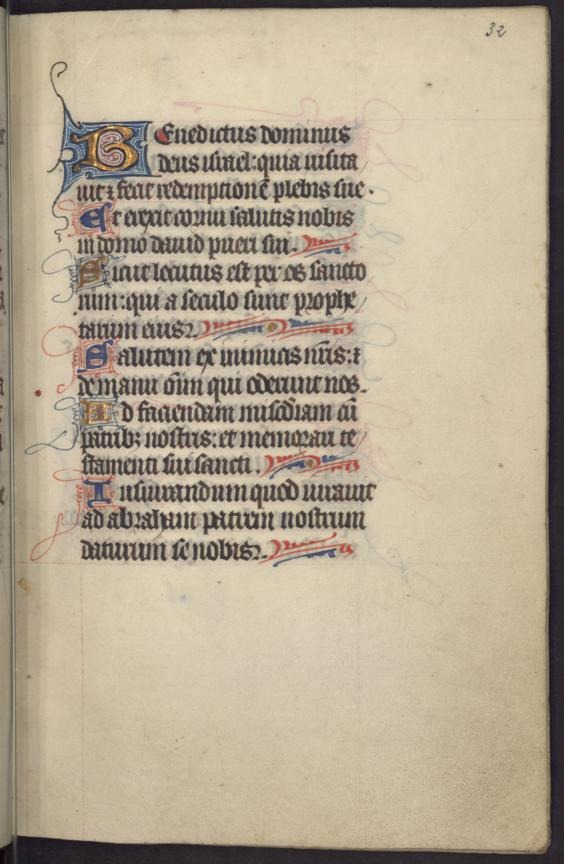 32
Benedictus dominus
deus israel: quia uisita
uit ⁊ fecit redemptionē plebis sue.
Et erexit cornu salutis nobis
in domo dauid pueri sui.
Sicut locutus est per os sancto
rum: qui a seculo sunt prophe
tarum eius.
Salutem ex inimicis nr̄is: ⁊
de manu om̄i qui oderunt nos.
Ad faciendam mis̄c̄diam cū
patribꝫ nostris: et memorari te
stamenti sui sancti.
Iusiurandum quod iurauit
ad abraham patrem nostrum
daturum se nobis.